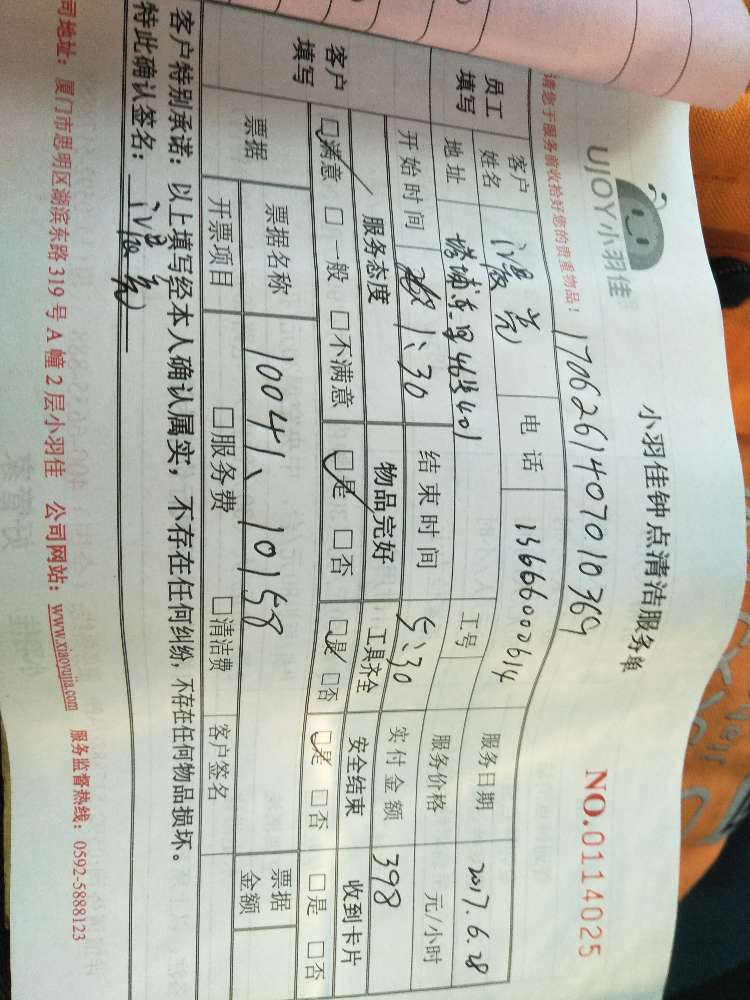 UJOY小羽佳
小羽佳钟点清洁服务单
NO.0114025
请您于服务前收拾好您的贵重物品！
1706261407010369
员工填写
客户姓名
电话
13666000614
服务日期
2017.6.28
地址
46号401
工号
服务价格
元/小时
开始时间
1:30
结束时间
5:30
实付金额
398
客户填写
服务态度
物品完好
工具齐全
安全结束
收到卡片
□满意 □一般 □不满意
□是 □否
□是 □否
□是 □否
□是 □否
票据
票据名称
10041、10158
票据金额
开票项目
□服务费
□清洁费
客户签名
客户特别承诺：以上填写经本人确认属实，不存在任何纠纷，不存在任何物品损坏。
特此确认签名：
司地址：厦门市思明区湖滨东路319号A幢2层小羽佳 公司网站：www.xiaoyujia.com 服务监督热线：0592-5888123